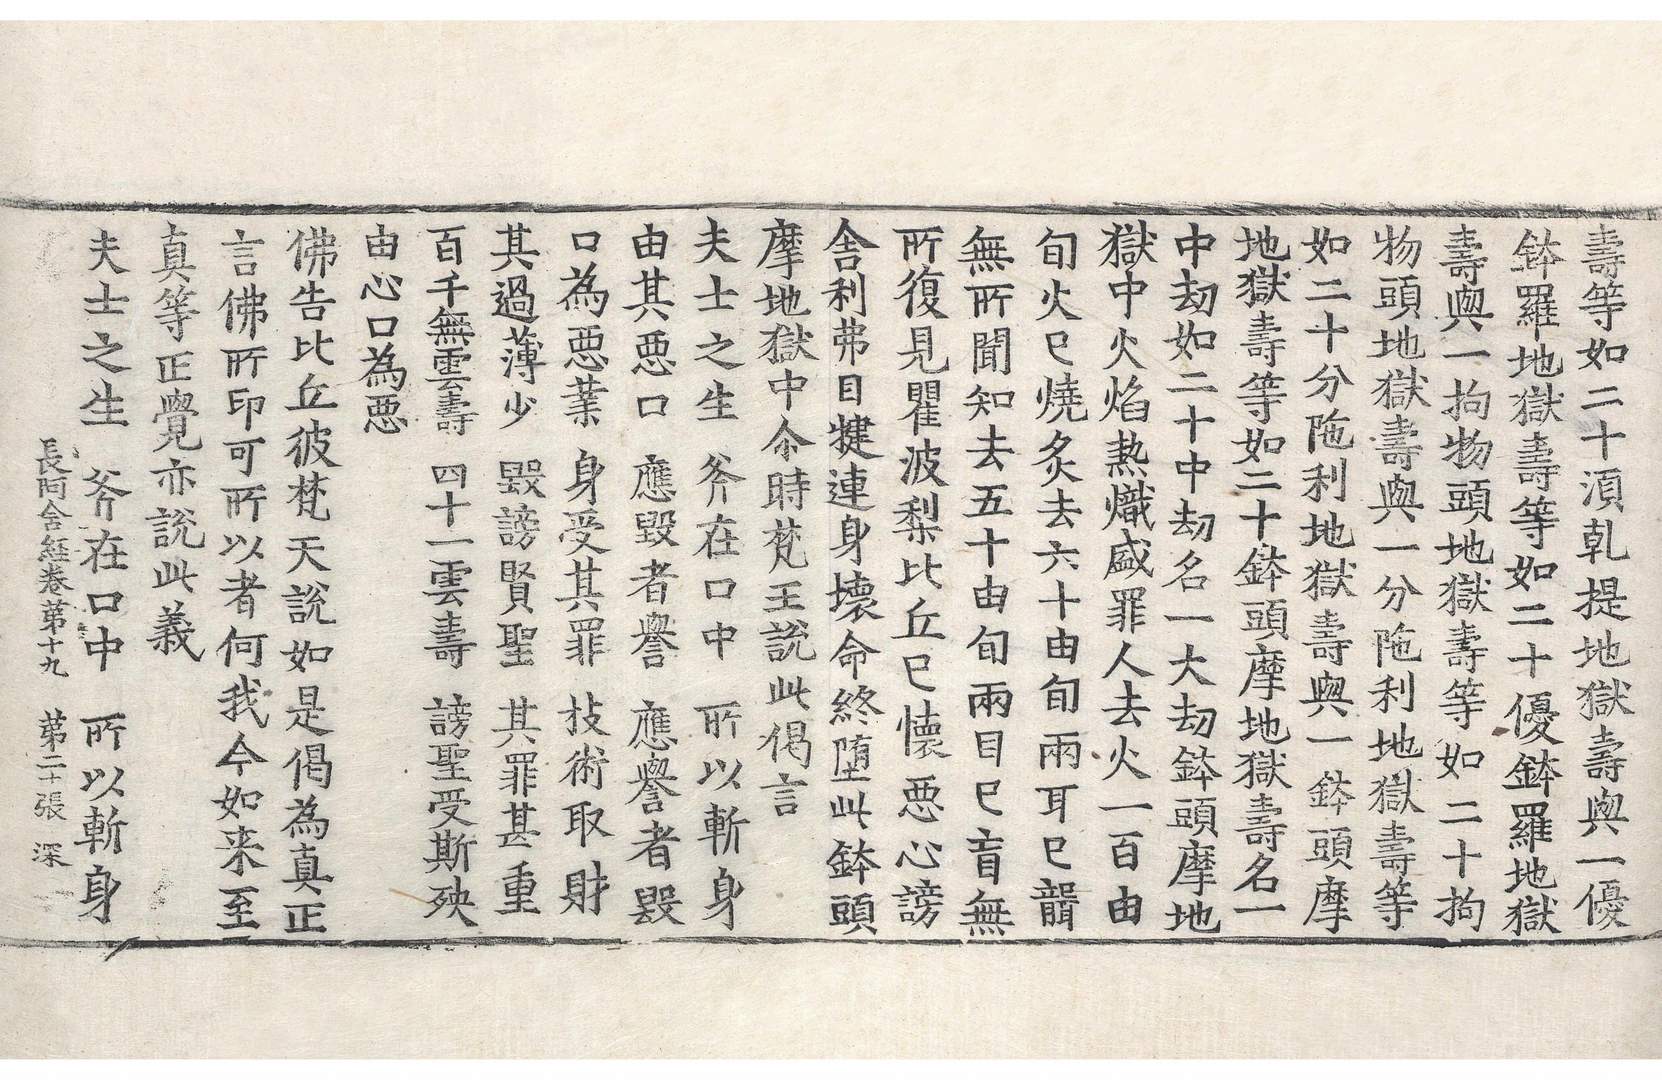 壽等如二十湏乹提地獄壽與一優
鉢羅地獄壽等如二十優鉢羅地獄
壽與一拘物頭地獄壽等如二十拘
物頭地獄壽與一分陁利地獄壽等
如二十分陁利地獄壽與一鉢頭摩
地獄壽等如二十鉢頭摩地獄壽名一
中劫如二十中劫名一大劫鉢頭摩地
獄中火焰熱熾盛罪人去火一百由
旬火已燒炙去六十由旬兩耳已聾
無所聞知去五十由旬兩目已盲無
所復見瞿波梨比丘已懷惡心謗
舍利弗目揵連身壞命終墮此鉢頭
摩地獄中尒時梵王說此偈言
夫士之生 斧在口中 所以斬身
由其惡口 應毀者譽 應譽者毀
口為惡業 身受其罪 技術取財
其過薄少 毀謗賢聖 其罪甚重
百千無雲壽 四十一雲壽 謗聖受斯殃
由心口為惡
佛告比丘彼梵天說如是偈為真正
言佛所印可所以者何我今如来至
真等正覺亦說此義
夫士之生 斧在口中 所以斬身
長阿含經卷第十九 第二十張 深